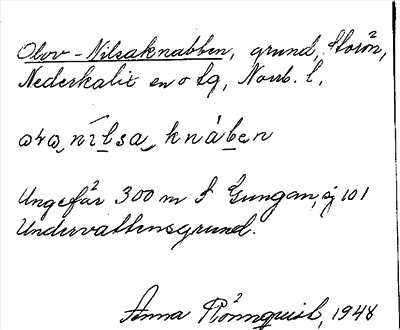 Olov-Nilsaknabben, grund, Storön,
Nederkalix sn o tg, Norrb. l.
ωvω nìlsa knáben
Ungefär 300 m S Gungan, sj 101
Undervattensgrund.
Anna Rönnquist, 1948